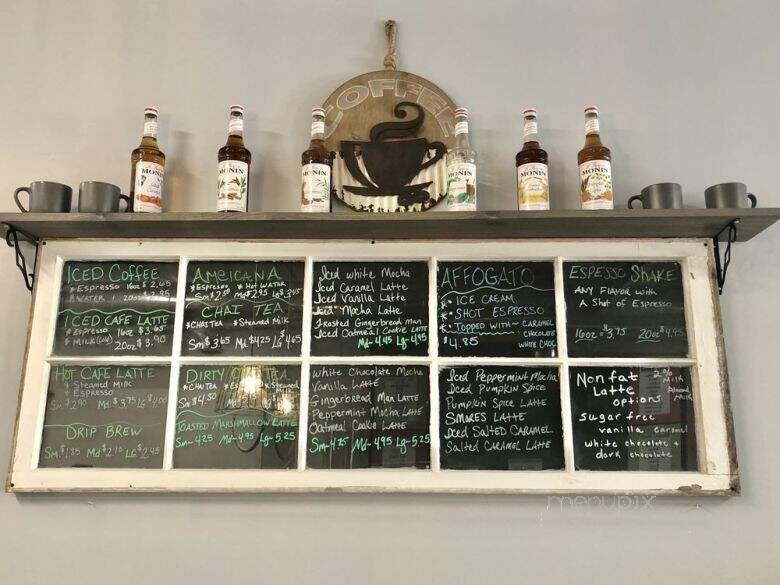 COFFEE
MONIN
MONIN
MONIN
MONIN
MONIN
MONIN
ICED COFFEE
* Espresso 16oz $2.65
* WATER 20oz $2.95
ICED CAFE LATTE
* Espresso 16oz $3.65
* MILK 20oz $3.90
AMEICANA
* Espresso * Hot WATER
Sm $2.50 Md $2.95 Lg $3.45
CHAI TEA
* CHAI TEA * Steamed Milk
Sm $3.65 Md $4.25 Lg $4.65
Iced white Mocha
Iced Caramel Latte
Iced Vanilla Latte
Iced Mocha Latte
Frosted Gingerbread man
Iced Oatmeal Cookie LATTE
Md-4.45 Lg-4.95
AFFOGATO
* ICE CREAM
* SHOT ESPRESSO
* TOPPED WITH~ CARAMEL
CHOCOLATE
$4.85 WHITE CHOC
ESPESSO SHAKE
ANY FLAVOR with
A Shot of Espresso
16oz = 3.75 20oz $4.95
HOT CAFE LATTE
* Steamed Milk
* ESPRESSO
Sm $2.90 Md $3.75 Lg $4.00
DRIP BREW
Sm $1.85 Md $2.10 Lg $2.45
DIRTY CHAI TEA
* CHAI TEA * Espresso * Steamed
Sm $4.50
TOASTED MARSHMALLOW LATTE
Sm-4.25 Md-4.95 Lg-5.25
White Chocolate Mocha
Vanilla LATTE
Gingerbread Man LATTE
Peppermint Mocha LATTE
Oatmeal Cookie LATTE
Sm-4.25 Md-4.95 Lg-5.25
Iced Peppermint Mocha
Iced Pumpkin Spice
Pumpkin Spice LATTE
SMORES LATTE
Iced Salted CARAMEL
Salted CARAMEL LATTE
Non fat 2%
Latte MILK
options Almond
MILK
Sugar free
vanilla caramel
white chocolate +
dark chocolate
menupix